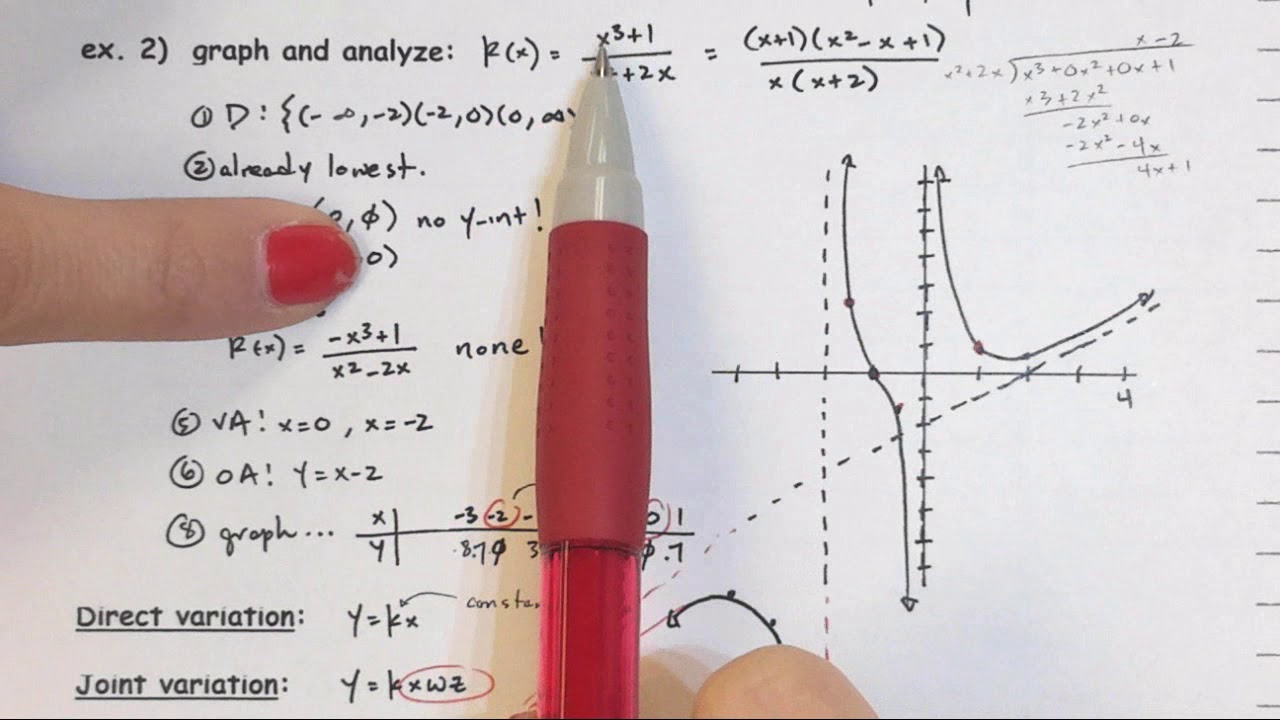 ex. 2) graph and analyze: R(x) = x³+1 / +2x = (x+1)(x²-x+1) / x(x+2)
x-2
x²+2x) x³+0x²+0x+1
x³+2x²
-2x²+0x
-2x²-4x
4x+1
① D: {(-∞,-2)(-2,0)(0,∞
② already lowest.
,ϕ) no y-int!
0)
R(x) = -x³+1 / x²-2x none!
⑤ VA! x=0, x=-2
⑥ OA! Y=x-2
⑧ graph...
x -3 -2 - 0 1
y -8.7 ϕ 3 ϕ .7
4
Direct variation: Y=kx
Joint variation: Y=kxwz